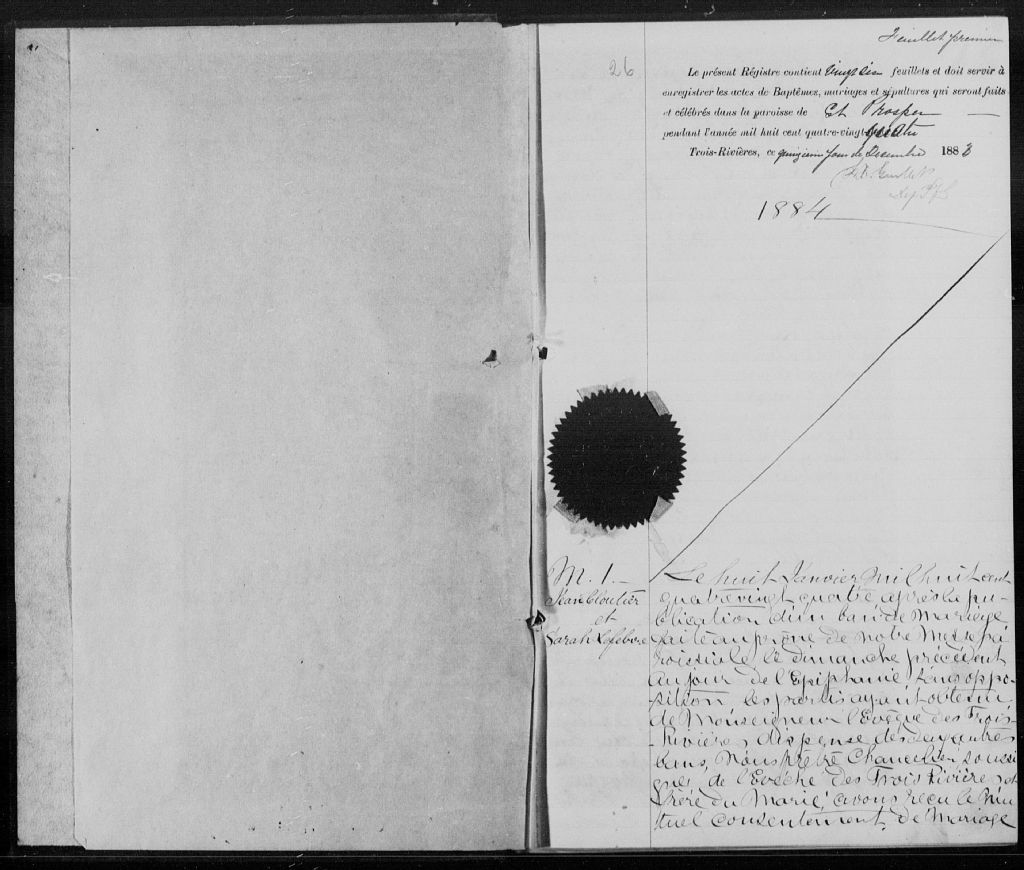 Feuillet premier
26
Le présent Régistre contient vingt six feuillets et doit servir à
enregistrer les actes de Baptêmes, mariages et sépultures qui seront faits
et célébrés dans la paroisse de St Prosper
pendant l'année mil huit cent quatre-vingt quatre
Trois-Rivières, ce quinzième jour de Décembre 1883
1884
M. 1.
Jean Cloutier
et
Sarah Lefebvre
Le huit Janvier Mil huit cent
quatre vingt quatre après la pu-
blication d'un ban de Mariage
faite au prône de notre Messe Pa
roissiale le dimanche précédent
au jour de l'Epiphanie sans oppo-
sition les partis ayant obtenu
de Monseigneur l'Evêque des Trois-
-Rivières dispense des deux autres
bans, Nous prêtre Chancelier soussi
gné, de l'Evêché des Trois Rivières et
frère du Marié, avons reçu le Mu
tuel consentement de Mariage